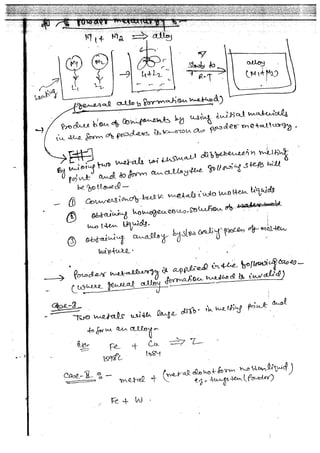 Powder metallurgy :-
M1 + M2 ⟹ alloy
M1 M2 → L1+L2 → Slowly to R.T alloy (M1+M2)
heating L1 L2
(General alloy formation method)
→ Production of Components by using initial materials
in the form of powders is known as powder metallurgy.
By mixing two metals with small difference in melting
point and to form an alloy the following steps will
be followed —
① Conversion of bulk metals into molten liquids
② obtaining homogeneous solution of
molten liquids.
③ obtaining an alloy by slow cooling process of molten
mixture.
→ Powder metallurgy is applied in the following cases —
(where general alloy formation method is invalid)
Case-I
Two metals with large diff. in melting point and
to form an alloy -
Fe + Cu ⟹
Case-II :- metal + (metal do not form molten liquid)
eg. tungsten (Powder)
Fe + W .